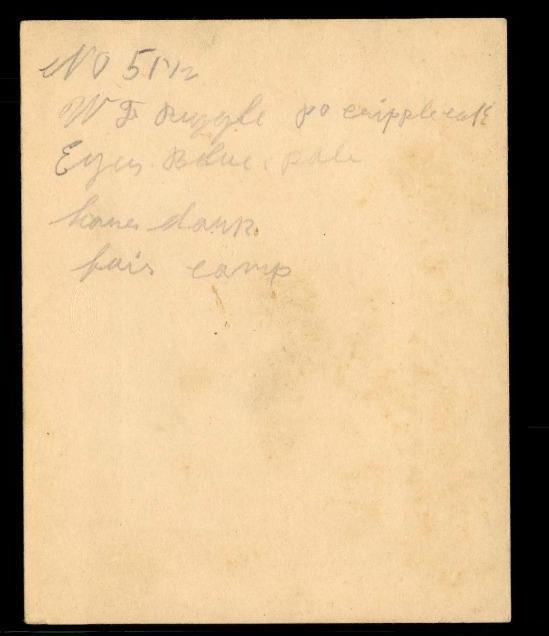 No 51½
W F Ruggle po cripplecrek
Eyes Blue pale
haires dark
fair comp